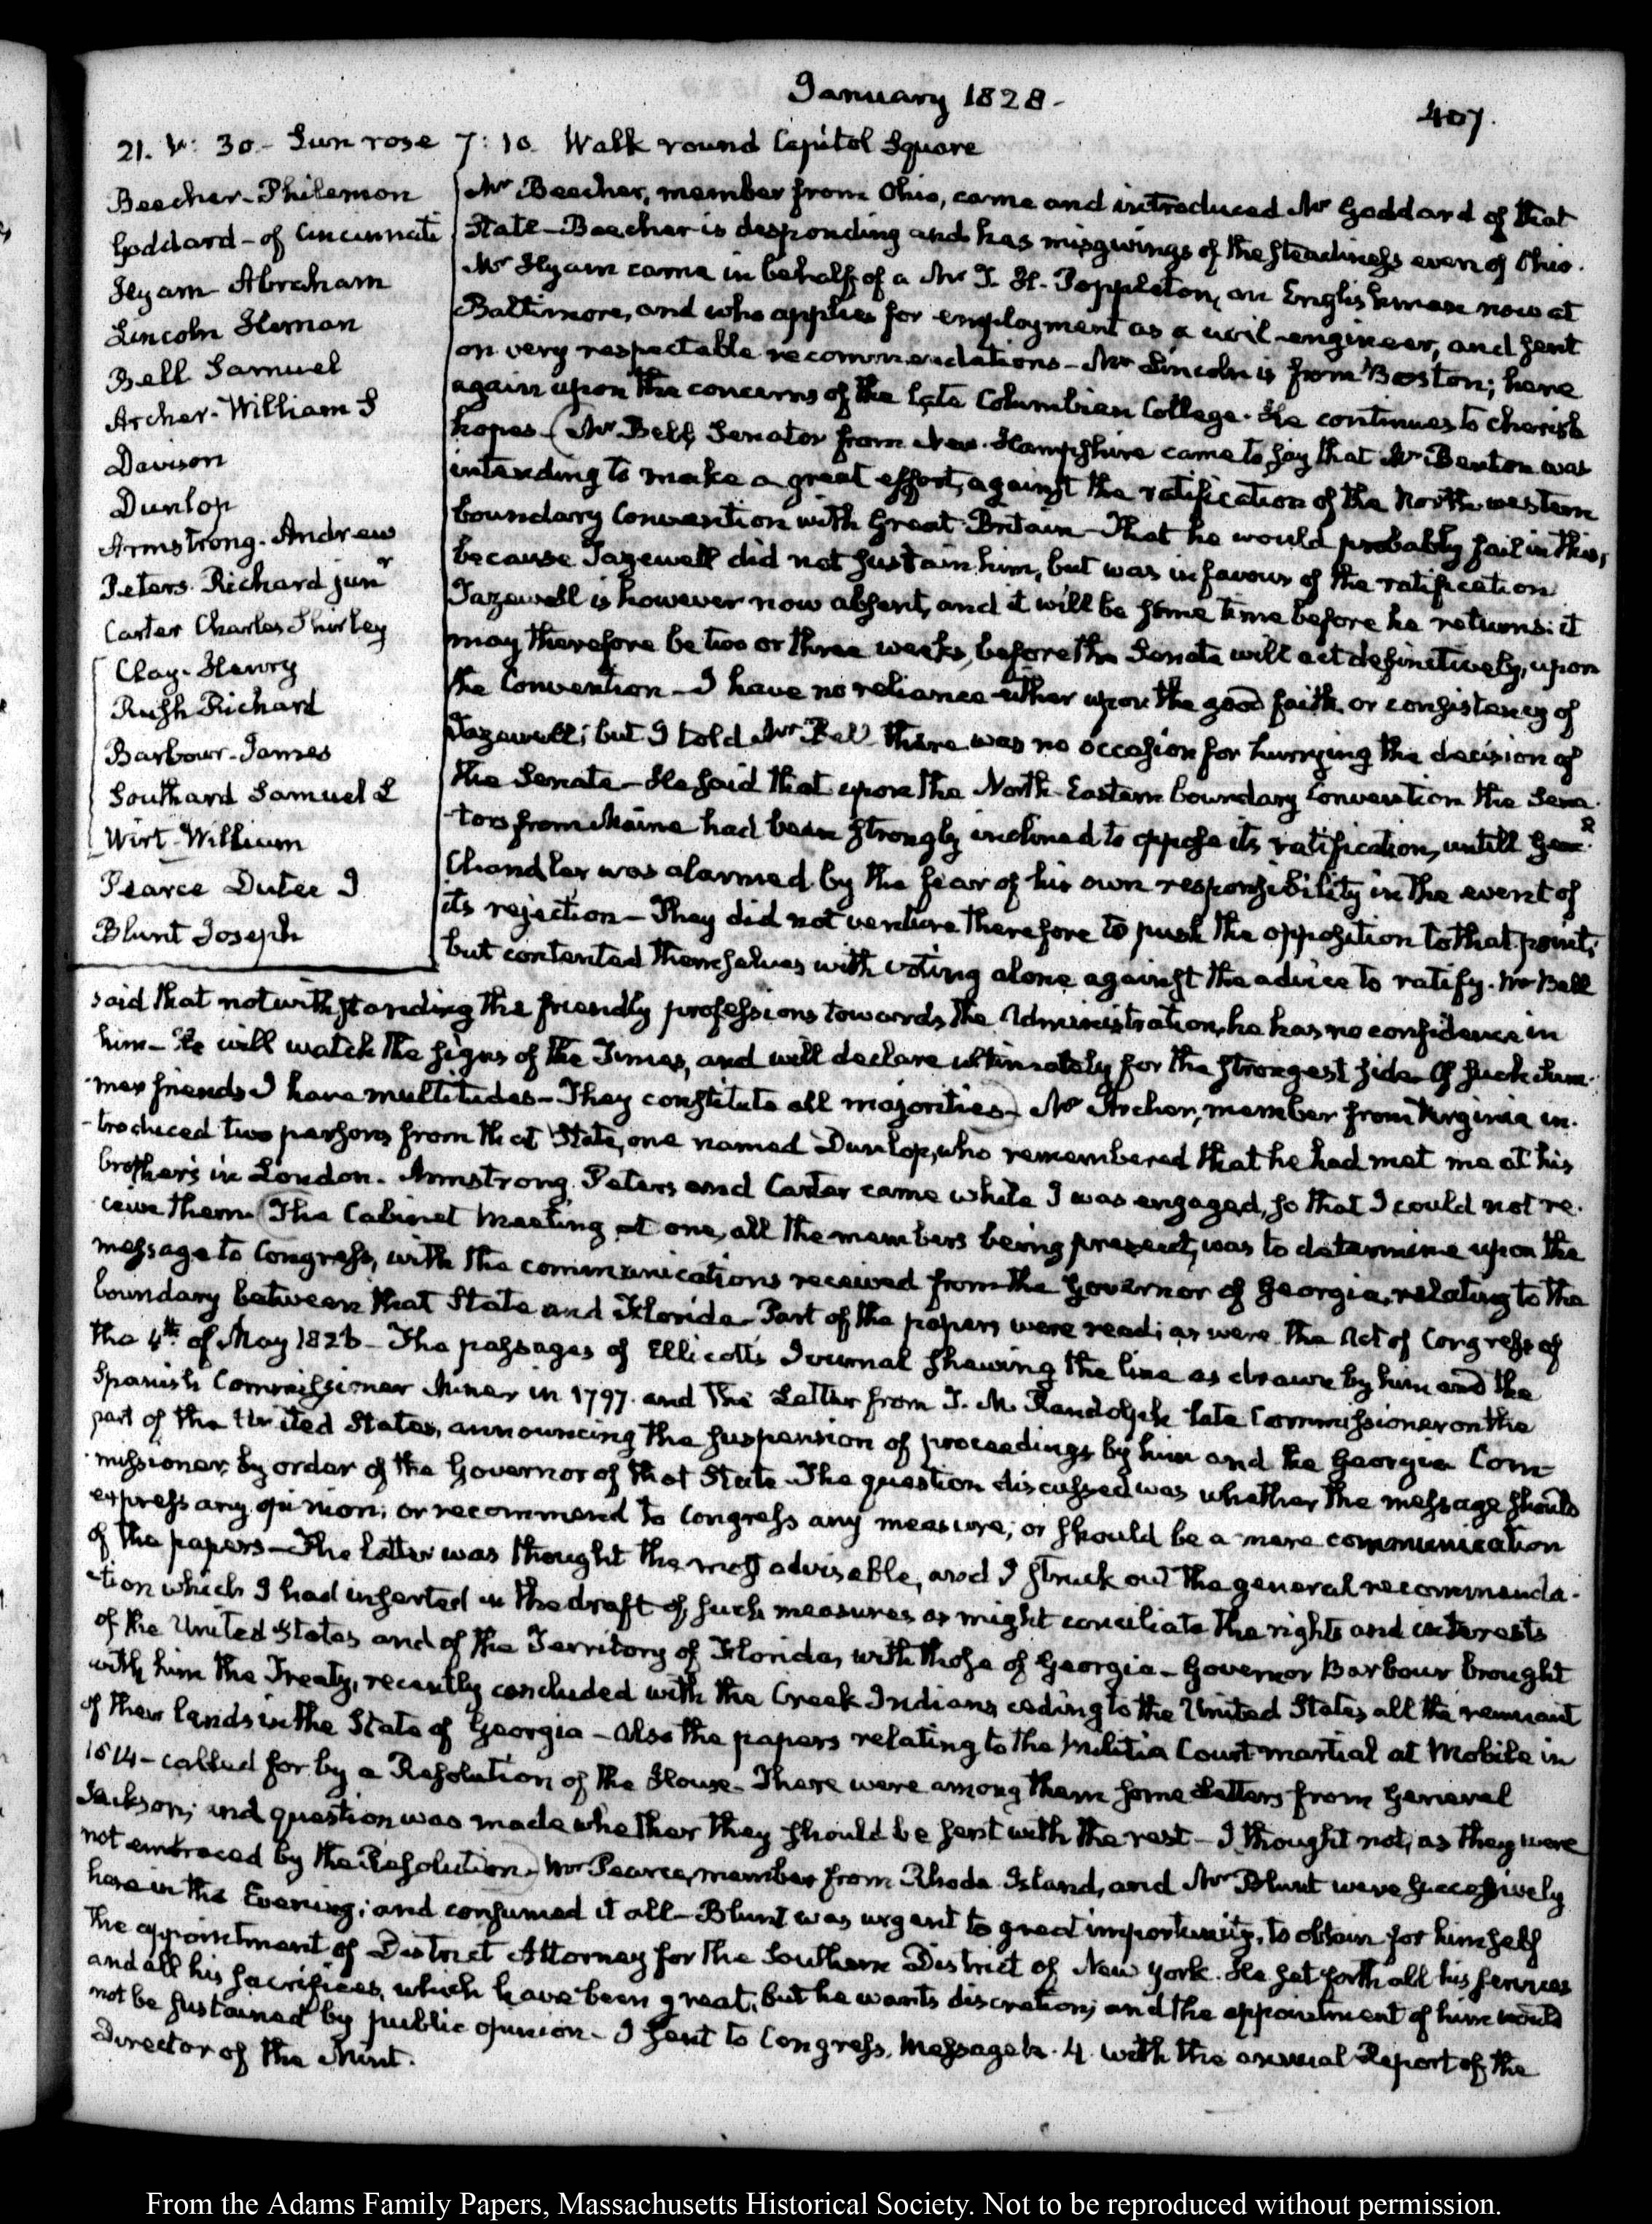 January 1828-
407.
21. V: 30- Sun rose 7:10. Walk round Capitol Square
Beecher-Philemon
Goddard-of Cincinnati
Hyam Abraham
Lincoln Heman
Bell Samuel
Archer-William S
Davison
Dunlop
Armstrong-Andrew
Peters. Richard junr
Carter Charles Shirley
Clay-Henry
Rush Richard
Barbour-James
Southard Samuel L
Wirt-William
Pearce Dutee J
Blunt Joseph
Mr Beecher, member from Ohio, came and introduced Mr Goddard of that
State-Beecher is desponding and has misgivings of the steadiness even of Ohio.
Mr Hyam came in behalf of a Mr T. H. Poppleton, an Englishman now at
Baltimore, and who applies for employment as a civil-engineer, and sent
on very respectable recommendations-Mr Lincoln is from Boston; here
again upon the concerns of the late Columbian College. He continues to cherish
hopes-(Mr Bell, Senator from New-Hampshire came to say that Mr Benton was
intending to make a great effort, against the ratification of the North-western
boundary Convention with Great-Britain-That he would probably fail in this,
because Tazewell did not sustain him, but was in favour of the ratification
Tazewell is however now absent, and it will be some time before he returns: it
may therefore be two or three weeks, before the Senate will act definitively, upon
the Convention-I have no reliance either upon the good faith, or consistency of
Tazewell; but I told Mr Bell there was no occasion for hurrying the decision of
the Senate-He said that upon the North-Eastern boundary Convention the Sena-
-tors from Maine had been strongly inclined to oppose its ratification, untill Genl
Chandler was alarmed by the fear of his own responsibility in the event of
its rejection-They did not venture therefore to push the opposition to that point;
but contented themselves with voting alone against the advice to ratify. Mr Bell
said that notwithstanding the friendly professions towards the Administration, he has no confidence in
him-He will watch the signs of the Times, and will declare ultimately for the strongest side-Of such Sum-
-mer friends I have multitudes-They constitute all majorities-) Mr Archer, member from Virginia in-
-troduced two persons from that State, one named Dunlop, who remembered that he had met me at his
brother's in London. Armstrong, Peters and Carter came while I was engaged, so that I could not re-
-ceive them (The Cabinet Meeting at one, all the members being present, was to determine upon the
message to Congress, with the communications received from the Governor of Georgia, relating to the
boundary between that State and Florida-Part of the papers were read; as were the Act of Congress of
the 4th of May 1826-The passages of Ellicott's Journal shewing the line as drawn by him and the
Spanish Commissioner Minor in 1797. and the Letter from T. M. Randolph late Commissioner on the
part of the United States, announcing the suspension of proceedings by him and the Georgia Com-
-missioner, by order of the Governor of that State-The question discussed was whether the message should
express any opinion; or recommend to Congress any measure; or should be a mere communication
of the papers-The latter was thought the most advisable, and I struck out the general recommenda-
-tion which I had inserted in the draft of such measures as might conciliate the rights and interests
of the United States and of the Territory of Florida, with those of Georgia-Governor Barbour brought
with him the Treaty, recently concluded with the Creek Indians ceding to the United States all the remnant
of their lands in the State of Georgia-also the papers relating to the Militia Court-martial at Mobile in
1814-called for by a Resolution of the House-There were among them some Letters from General
Jackson; and question was made whether they should be sent with the rest-I thought not, as they were
not embraced by the Resolution-) Mr Pearce, member from Rhode-Island, and Mr Blunt were successively
here in the Evening; and consumed it all-Blunt was urgent to great importunity, to obtain for himself
the appointment of District Attorney for the Southern District of New York. He set forth all his services
and all his sacrifices, which have been great; but he wants discretion; and the appointment of him would
not be sustained by public opinion-I sent to Congress, Message H. 4. with the annual Report of the
Director of the Mint.
From the Adams Family Papers, Massachusetts Historical Society. Not to be reproduced without permission.